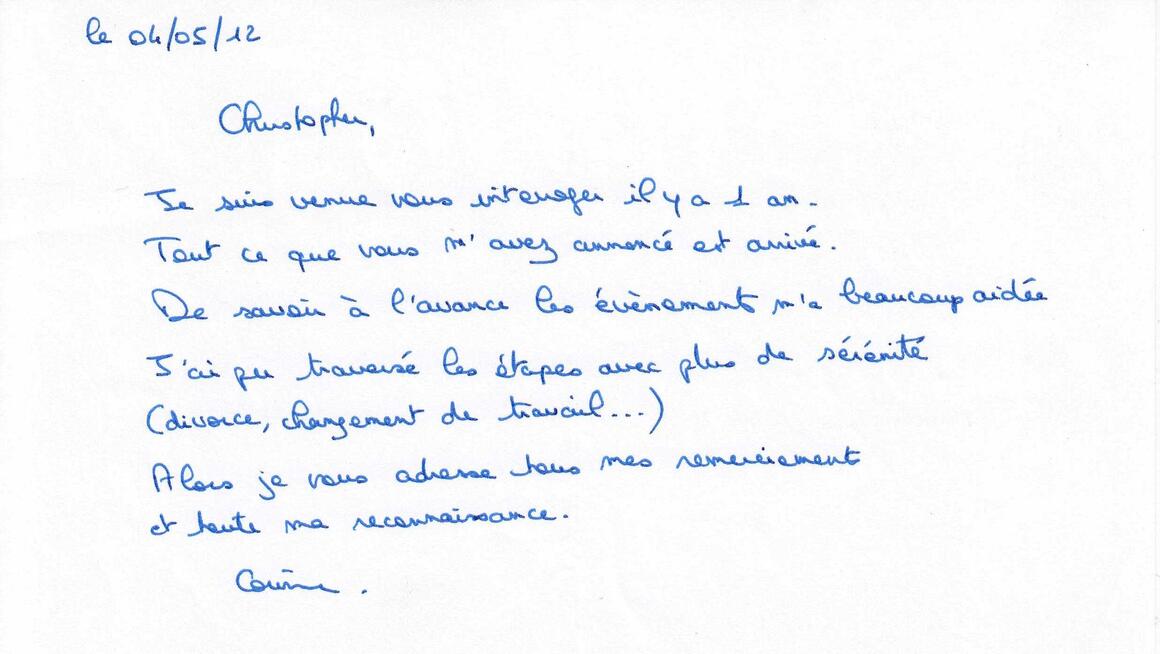 le 04/05/12
Christopher,
Je suis venue vous interroger il y a 1 an.
Tout ce que vous m'avez annoncé est arrivé.
De savoir à l'avance les évènements m'a beaucoup aidée
J'ai pu traversé les étapes avec plus de sérénité
(divorce, changement de travail...)
Alors je vous adresse tous mes remerciements
et toute ma reconnaissance.
Corinne.